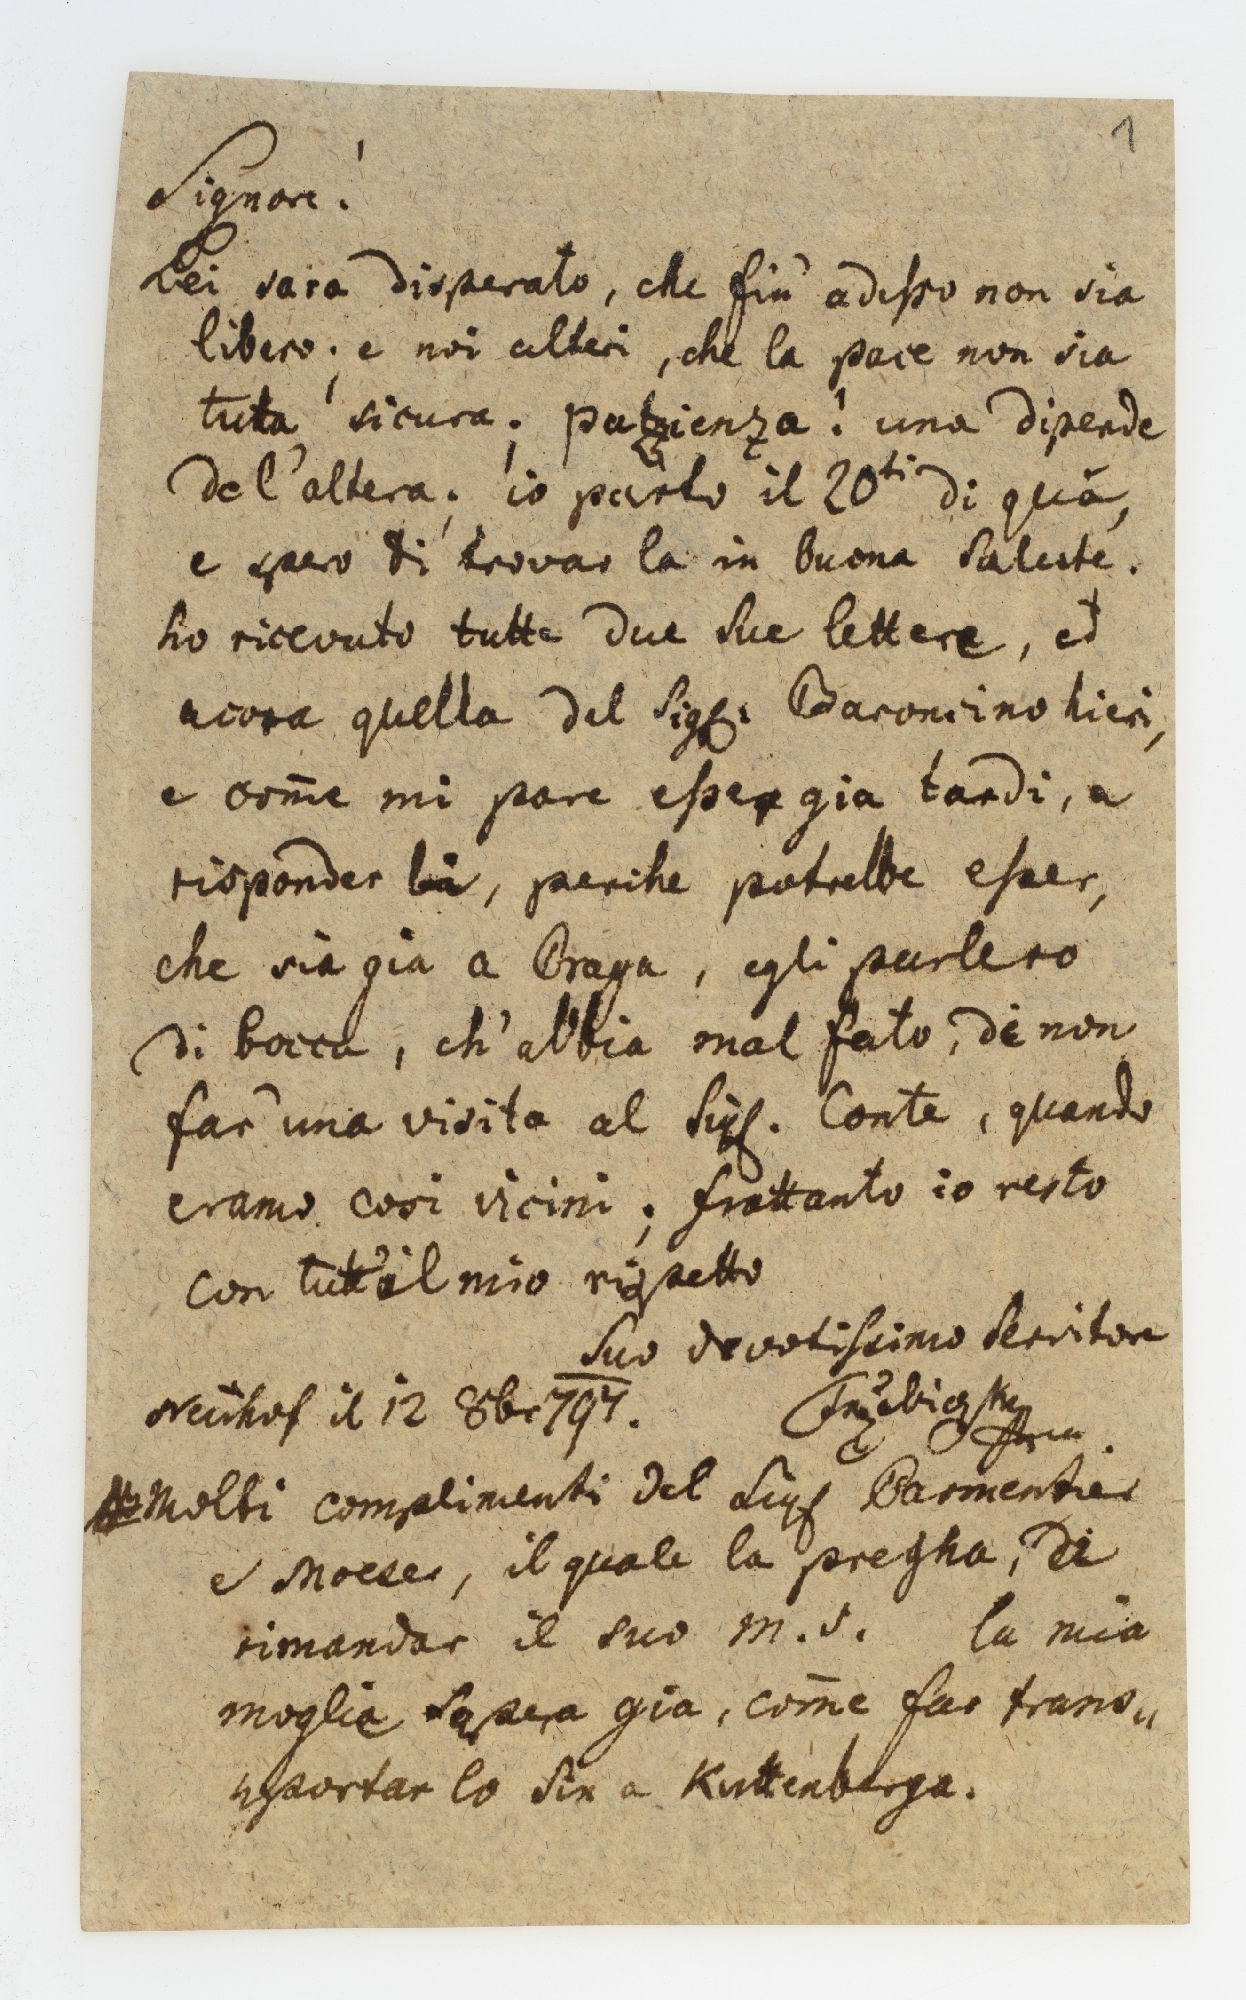 1
Signore!
Lei sara disperato, che fin adesso non sia
libero; e noi alteri, che la pace non sia
tuta sicura; patzienza! una dipende
del'altera; io parto il 20ti di quà,
e spero di trovar la in buona salute.
ho ricevuto tutte due sue lettere, ed
acora quella del Sigr: Baroncino hieri,
e come mi pare esser gia tardi, a
risponder , perche potrebbe esser,
che sia gia a Praga, egli parlero
di bocca, ch'abbia mal fato, di non
far una visita al Sigr. Conte, quando
eramo cosi vicini; frattanto io resto
con tutt'il mio rispetto
Suo devotissimo Servitore
Neuhof il 12 8br 797.
Molti complimenti del Sigr Parmentier
e Moeser, il quale la pregha, di
rimandar il suo m.s. la mia
moglie sapera gia, come far trans„
sportar lo sin a Kuttenberga.